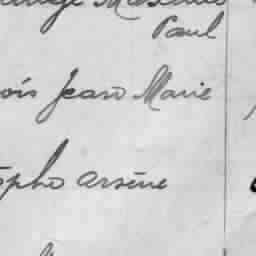 Paul
ois Jean Marie
ophe Arsène